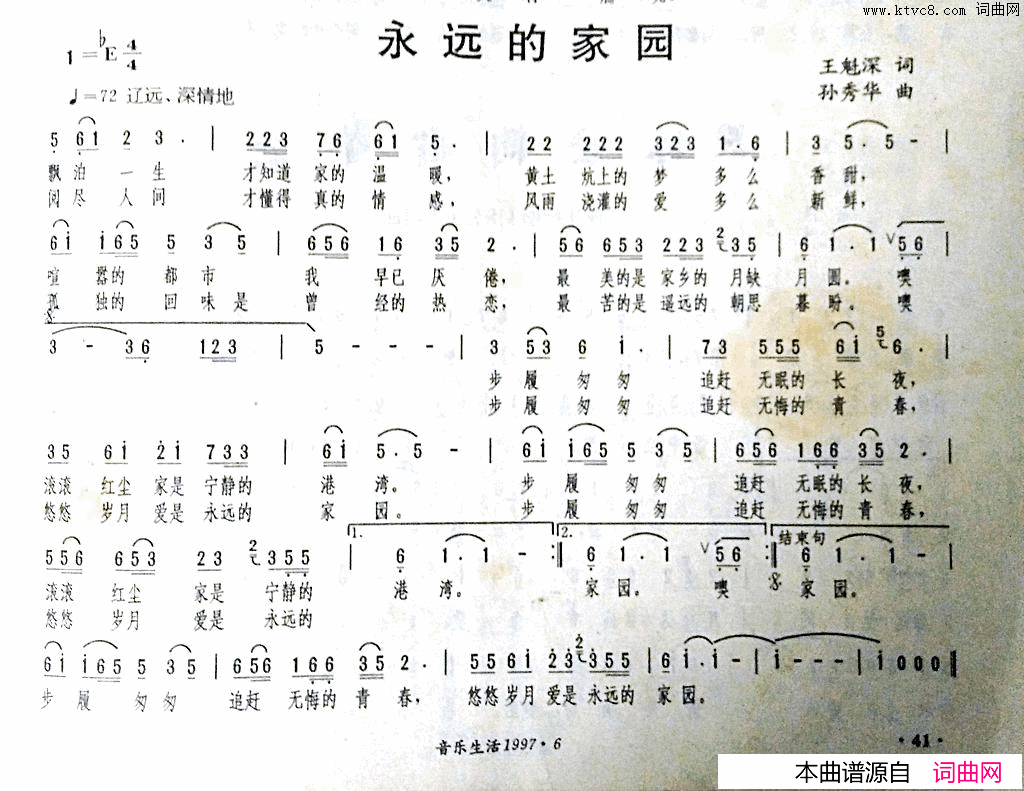 www.ktvc8.com 词曲网
永远的家园
1=♭E 4/4
王魁深 词
♩=72 辽远、深情地
孙秀华 曲
5 61 2 3. | 223 76 61 5. | 22 222 323 1.6 | 3 5.5 - |
飘泊一生 才知道家的温暖, 黄土坑上的梦多么香甜,
阅尽人间 才懂得真的情感, 风雨浇灌的爱多么新鲜,
61 165 5 3 5 | 656 16 35 2. | 56 653 223 35 | 6 1.1 56 |
喧嚣的都市 我早已厌倦, 最美的是家乡的月缺月圆。噢
孤独的回味是曾经的热恋, 最苦的是遥远的朝思暮盼。噢
3 - 36 123 | 5 - - - | 3 53 6 1. | 73 555 61 6. |
步履匆匆 追赶无眠的长夜,
步履匆匆 追赶无悔的青春,
35 61 21 733 | 61 5.5 - | 61 165 5 35 | 656 166 35 2. |
滚滚红尘家是宁静的港湾。 步履匆匆 追赶无眠的长夜,
悠悠岁月爱是永远的家园。 步履匆匆 追赶无悔的青春,
1. 2. 结束句
556 653 23 355 | 6 1.1 - :| 6 1.1 56 :| 6 1.1 - |
滚滚红尘 家是宁静的 港湾。 家园。 噢 家园。
悠悠岁月 爱是永远的
61 165 5 35 | 656 166 35 2. | 55 61 23 355 | 6 1.1 - | 1 - - - | 1000 ‖
步履匆匆 追赶无悔的青春, 悠悠岁月爱是永远的家园。
音乐生活1997·6
·41·
本曲谱源自 词曲网